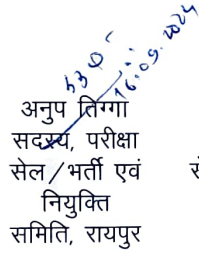 16.09.2024
अनुप तिग्गा
सदस्य, परीक्षा
सेल/भर्ती एवं
नियुक्ति
समिति, रायपुर